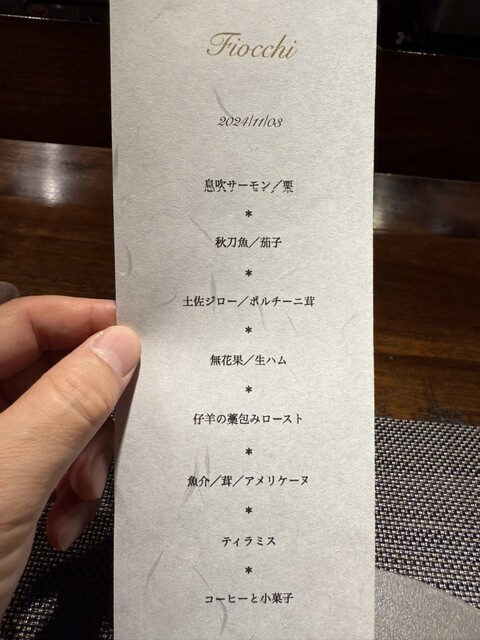 Fiocchi
2024/11/03
息吹サーモン／栗
*
秋刀魚／茄子
*
土佐ジロー／ポルチーニ茸
*
無花果／生ハム
*
仔羊の藁包みロースト
*
魚介／茸／アメリケーヌ
*
ティラミス
*
コーヒーと小菓子